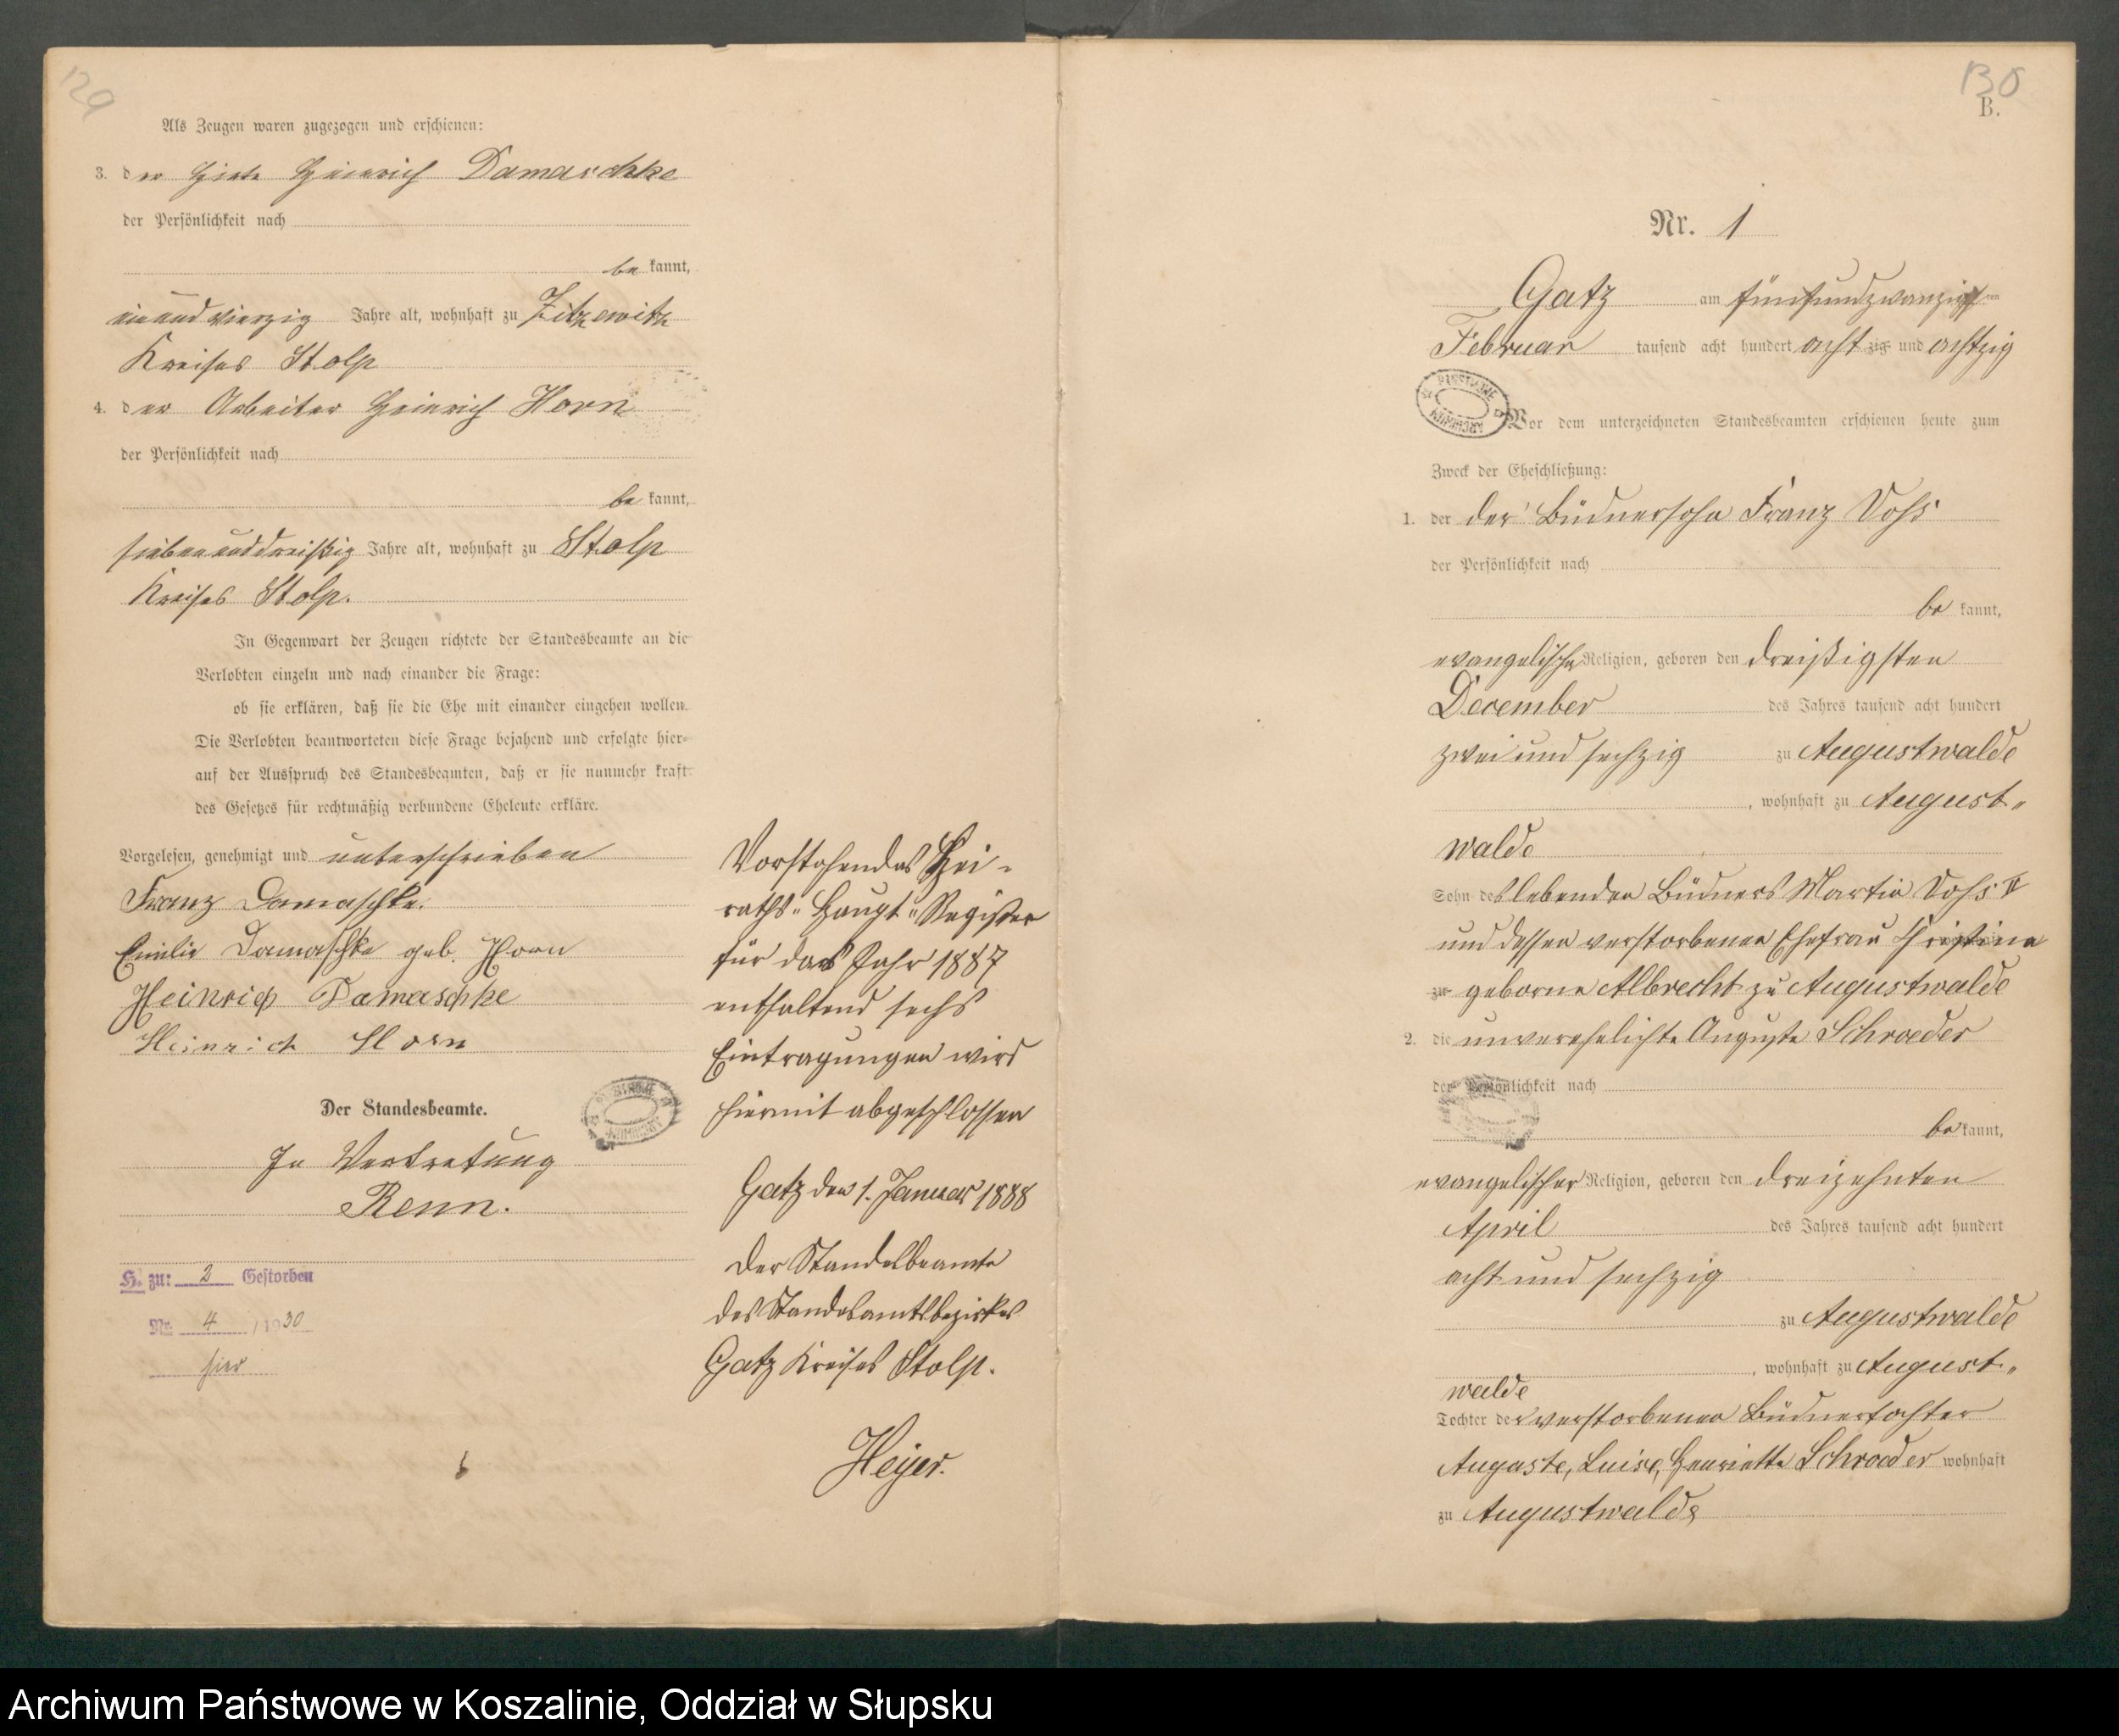 129
Als Zeugen waren zugezogen und erschienen:
3. der Hirte Heinrich Damaschke
der Persönlichkeit nach
be kannt,
einundvierzig Jahre alt, wohnhaft zu Zitzewitz
Kreises Stolp
4. der Arbeiter Heinrich Horn
der Persönlichkeit nach
be kannt,
siebenunddreißig Jahre alt, wohnhaft zu Stolp
Kreises Stolp.
In Gegenwart der Zeugen richtete der Standesbeamte an die
Verlobten einzeln und nach einander die Frage:
ob sie erklären, daß sie die Ehe mit einander eingehen wollen.
Die Verlobten beantworteten diese Frage bejahend und erfolgte hier-
auf der Ausspruch des Standesbeamten, daß er sie nunmehr kraft
des Gesetzes für rechtmäßig verbundene Eheleute erkläre.
Vorgelesen, genehmigt und unterschrieben
Franz Damaschke.
Emilie Damaschke geb. Horn
Heinrich Damaschke
Heinrich Horn
Der Standesbeamte.
In Vertretung
Renn.
H. zu: 2 Gestorben
Nr. 4 / 1930
hier
Vorstehendes Hei-
raths- Haupt- Register
für das Jahr 1887
enthaltend sechs
Eintragungen wird
hiermit abgeschlossen
Gatz den 1. Januar 1888
Der Standesbeamte
des Standesamtsbezirkes
Gatz Kreises Stolp.
Heyer.
130
B.
Nr. 1
Gatz am fünfundzwanzigsten
Februar tausend acht hundert acht zig und achtzig
Vor dem unterzeichneten Standesbeamten erschienen heute zum
Zweck der Eheschließung:
1. der der Büdnersohn Franz Voß
der Persönlichkeit nach
be kannt,
evangelischer Religion, geboren den dreißigsten
December des Jahres tausend acht hundert
zwei und sechzig zu Augustwalde
, wohnhaft zu August-
walde
Sohn des lebenden Büdners Martin Voß II
und dessen verstorbenen Ehefrau Christine
zu geborne Albrecht zu Augustwalde
2. die unverehelichte Auguste Schroeder
der Persönlichkeit nach
be kannt,
evangelischer Religion, geboren den dreizehnten
April des Jahres tausend acht hundert
acht und sechzig
zu Augustwalde
, wohnhaft zu August-
walde
Tochter der verstorbenen Büdnertochter
Auguste, Luise, Henriette Schroeder wohnhaft
zu Augustwalde
Archiwum Państwowe w Koszalinie, Oddział w Słupsku